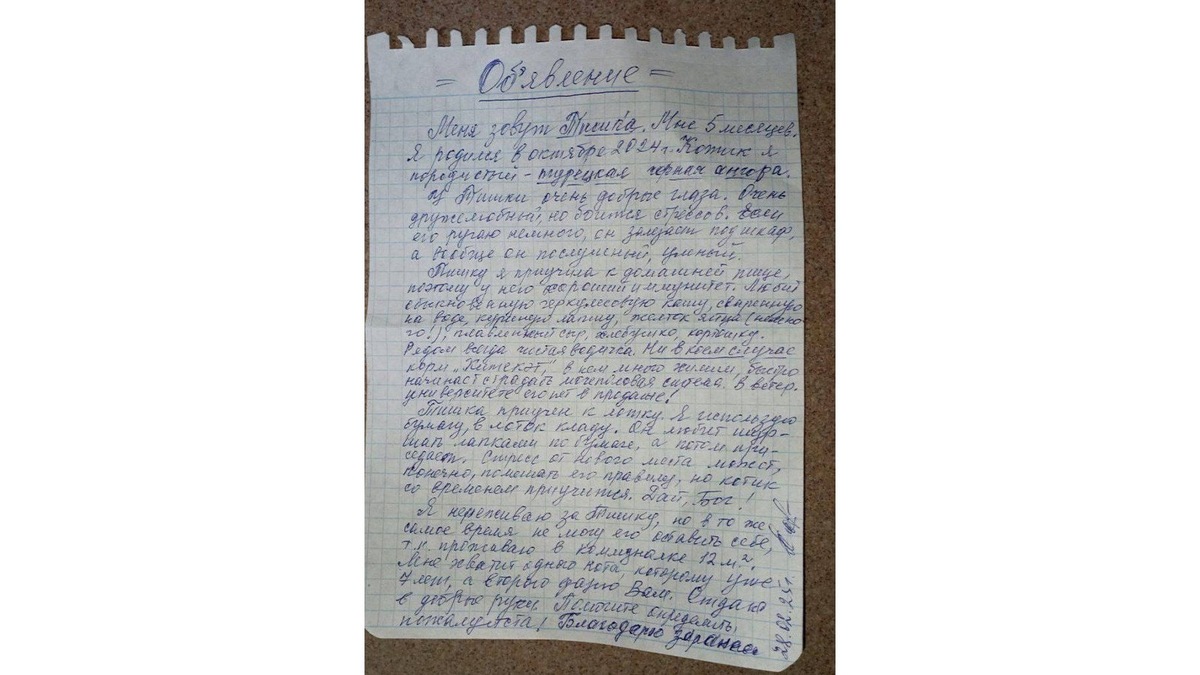 = Объявление =
Меня зовут Тишка. Мне 5 месяцев.
Я родился в октябре 2024 г. Котик я
породистый - турецкая черная ангора.
У Тишки очень добрые глаза. Очень
дружелюбный, но боится стрессов. Если
его ругаю немного, он залезает под шкаф,
а вообще он послушный, умный.
Тишку я приучила к домашней пище,
поэтому у него хороший иммунитет. Любит
обыкновенную геркулесовую кашу, сваренную
на воде, куриную лапшу, желток яйца (немно-
го!), плавленный сыр, хлебушко, картошку.
Рядом всегда чистая водичка. Ни в коем случае
корм „Китекэт", в нем много химии, быстро
начинает страдать мочеполовая система. В ветер.
университете его нет в продаже!
Тишка приучен к лотку. Я использую
бумагу, в лоток кладу. Он любит шур-
шать лапками по бумаге, а потом при-
седает. Стресс от нового места может,
конечно, помешать его правилу, но котик
со временем приучится. Дай, Бог!
Я переживаю за Тишку, но в то же
самое время не могу его оставить себе,
т.к. проживаю в коммуналке 12 м².
Мне хватит одного кота, которому уже
7 лет, а второго дарю Вам. Отдаю
в добрые руки. Помогите определить,
пожалуйста! Благодарю заранее.
28.02.25 г.